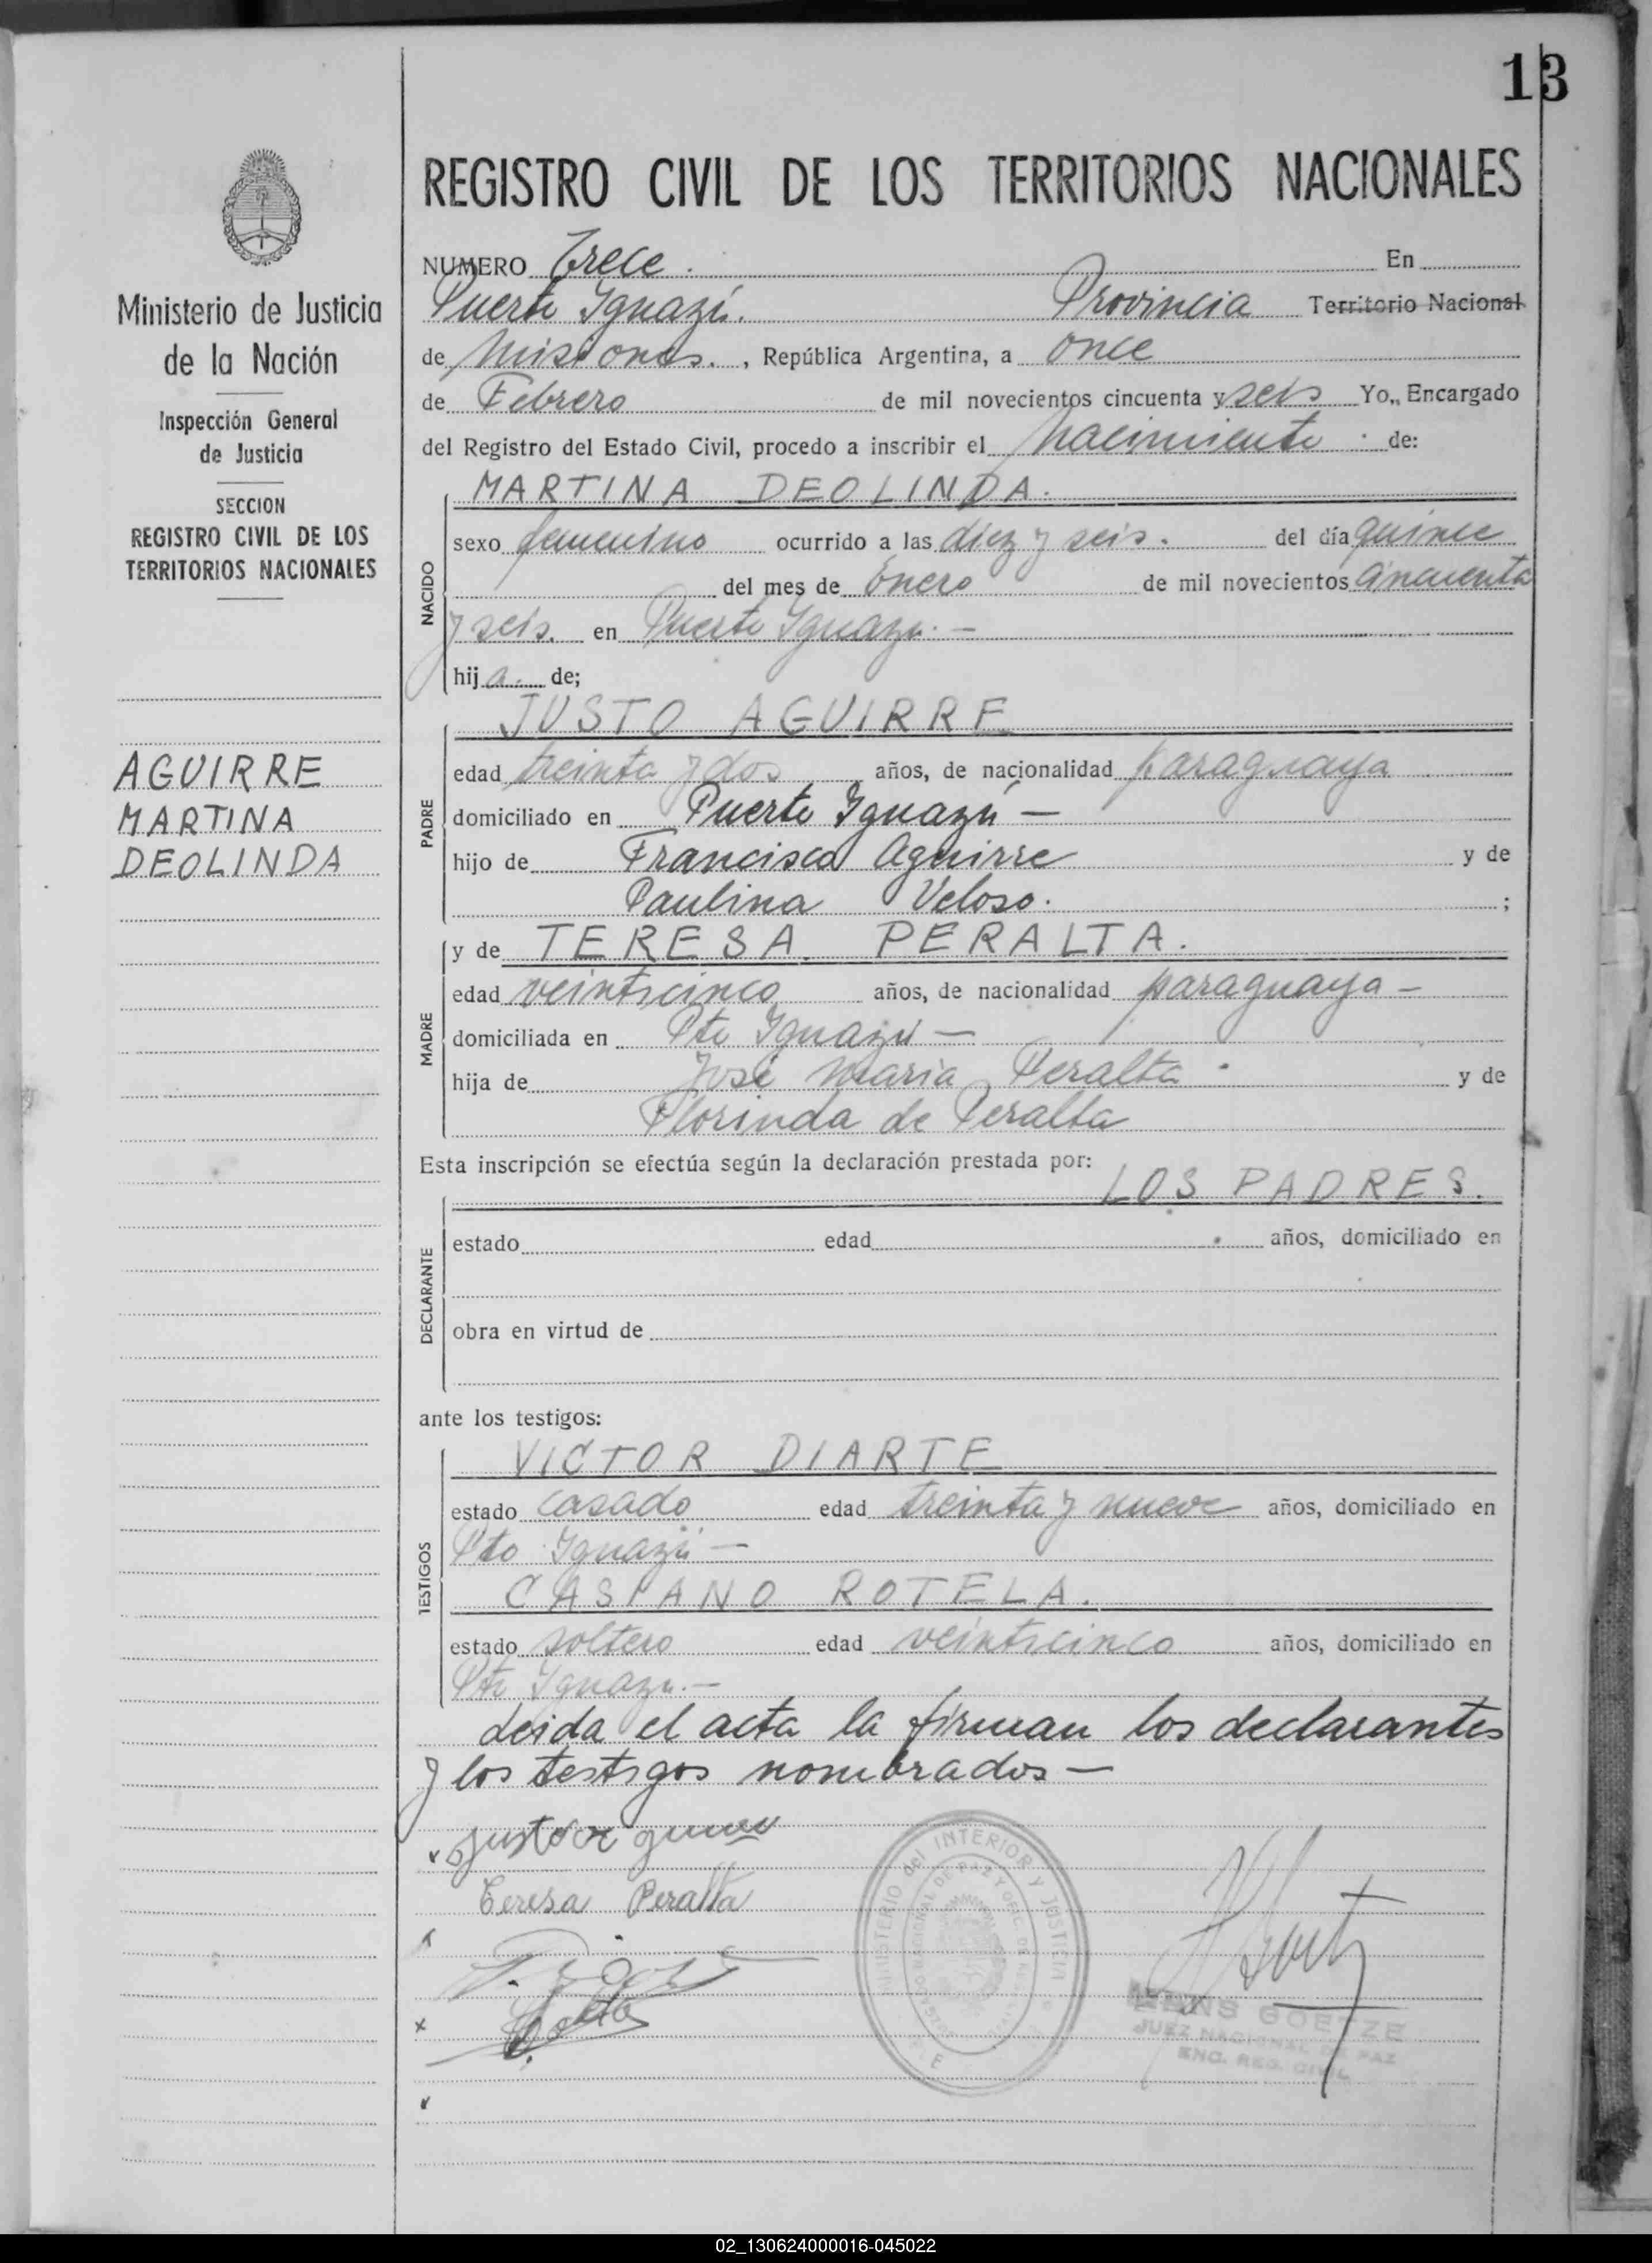 13
REGISTRO CIVIL DE LOS TERRITORIOS NACIONALES
Ministerio de Justicia
de la Nación
Inspección General
de Justicia
SECCION
REGISTRO CIVIL DE LOS
TERRITORIOS NACIONALES
AGUIRRE
MARTINA
DEOLINDA
NUMERO Trece. En
Puerto Iguazú. Provincia Territorio Nacional
de Misiones., República Argentina, a once
de Febrero de mil novecientos cincuenta y seis Yo,, Encargado
del Registro del Estado Civil, procedo a inscribir el nacimiento de:
NACIDO
MARTINA DEOLINDA.
sexo femenino ocurrido a las diez y seis. del día quince
del mes de Enero de mil novecientos cincuenta
y seis. en Puerto Iguazu.-
hija. de;
PADRE
JUSTO AGUIRRE
edad treinta y dos años, de nacionalidad paraguaya
domiciliado en Puerto Iguazú -
hijo de Francisco Aguirre y de
Paulina Veloso. ;
MADRE
y de TERESA PERALTA.
edad veinticinco años, de nacionalidad paraguaya -
domiciliada en Pto Iguazú -
hija de José Maria Peralta y de
Florinda de Peralta
Esta inscripción se efectúa según la declaración prestada por:
DECLARANTE
LOS PADRES.
estado edad años, domiciliado en
obra en virtud de
ante los testigos:
TESTIGOS
VICTOR DIARTE
estado casado edad treinta y nueve años, domiciliado en
Pto Iguazú -
CASIANO ROTELA.
estado soltero edad veinticinco años, domiciliado en
Pto Iguazu.-
Leida el acta la firman los declarantes
y los testigos nombrados -
Teresa Peralta
MINISTERIO del INTERIOR Y JUSTICIA
GOETZE
JUEZ NACIONAL DE PAZ
ENC. REG. CIVIL
02_130624000016-045022